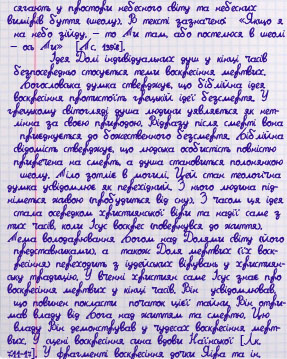 сягають у простори небесного світу та небесних
вимірів буття (шеолу). В тексті зазначено «Якщо я
на небо зійду, – то Ти там, або постелюся в шеолі
– ось Ти» [Пс. 139:8].
Ідея Долі індивідуальних душ у кінці часів
безпосередньо стосується теми воскресіння мертвих.
Богословська думка стверджує, що біблійна ідея
воскресіння протистоїть грецькій ідеї безсмертя. У
грецькому світогляді душа людини уявляється як нет-
лінна за своєю природою. Відразу після смерті вона
приєднується до божественного безсмертя. Біблійна
свідомість стверджує, що людська особистість повністю
приречена на смерть, а душа становиться полонянкою
шеолу. Тіло зотліє в могилі. Цей стан теологічна
думка усвідомлює як перехідний. З нього людина під-
німеться живою (пробудиться від сну). З часом ця ідея
стала осередком християнської віри та надії саме з
тих часів, коли Ісус воскрес (повернувся до життя).
Тема володарювання Богом над Долями світу (його
представниками), а також Долі мертвих (їх воск-
ресіння) переходить з іудейських вірувань у християн-
ську традицію. У вченні християн саме Ісус знає про
воскресіння мертвих у кінці часів. Він усвідомлював,
що повинен покласти початок цієї тайни. Він отри-
мав владу від Бога над життям та смертю. Цю
владу Він демонстрував у чудесах воскресіння мерт-
вих. У сцені воскресіння сина вдови Наїнської [Лк.
7:11-17]. У фрагменті воскресіння дочки Яіра та ін.